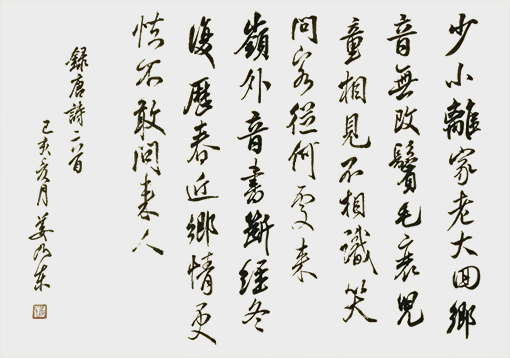 少小離家老大囬鄉
音無改鬢毛衰兒
童相見不相識笑
問客從何處来
嶺外音書斷經冬
復歷春近鄉情更
怯不敢問来人
録唐詩二首
己亥亥月姜乃东